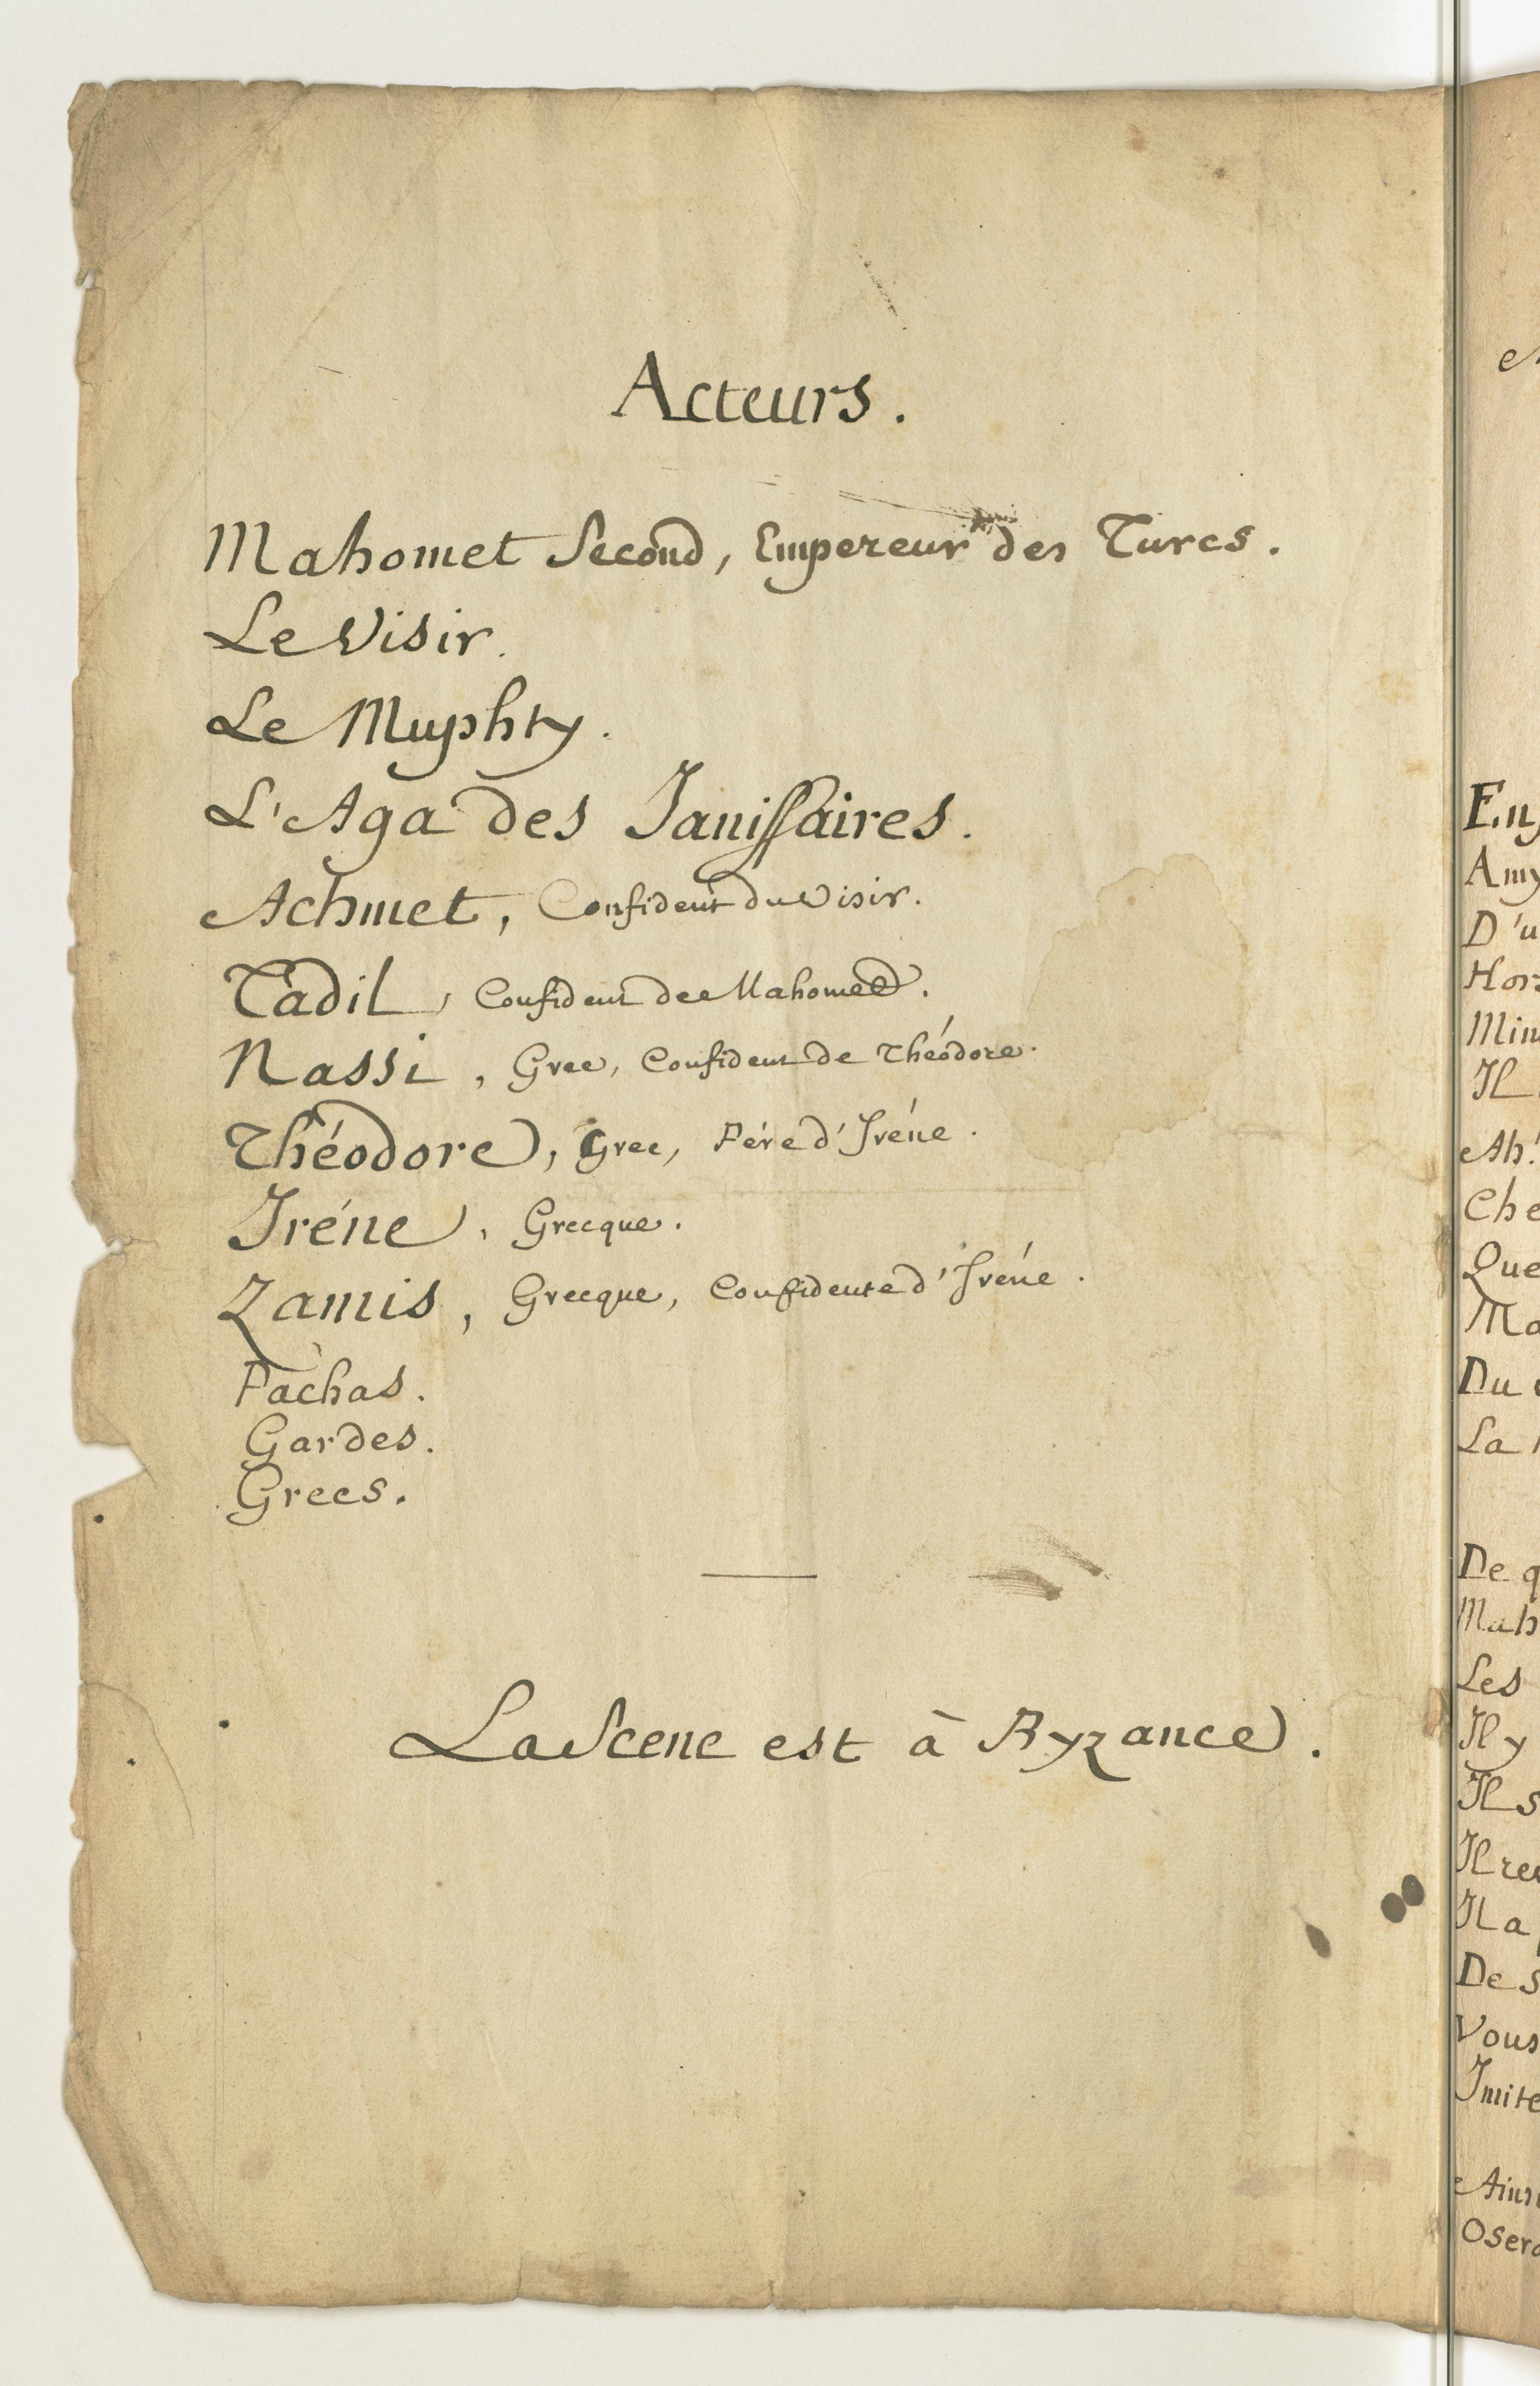 Acteurs.
Mahomet Second, Empereur des Turcs.
Le Visir.
Le Muphty.
L'Aga des Janissaires.
Achmet, Confident du Visir.
Tadil, Confident de Mahomed.
Nassi, Grec, Confident de Théodore.
Théodore, Grec, Pére d'Iréne.
Iréne, Grecque.
Zamis, Grecque, Confidente d'Iréne.
Pachas.
Gardes.
Grecs.
La Scene est à Byzance.
Amy
D'u
Il
Ah!
Che
Que
Du
La
De q
Mah
Les
Il y
Il s
Il re
Il a
De s
Vous
Imite
Ainsi
Osera